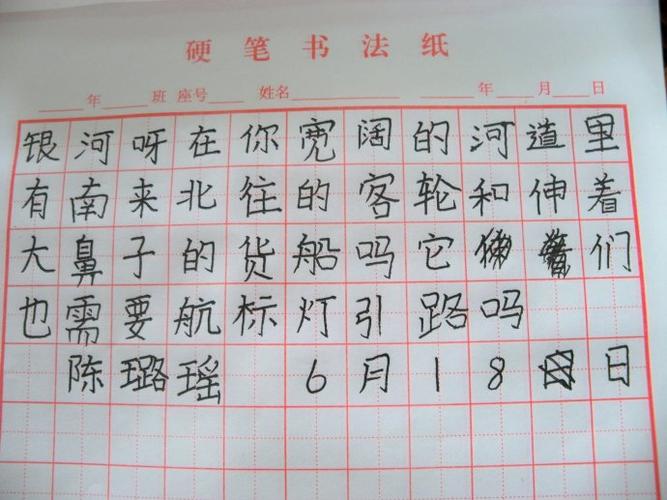 硬笔书法纸
年 班 座号 姓名 年 月 日
银河呀在你宽阔的河道里
有南来北往的客轮和伸着
大鼻子的货船吗它们
也需要航标灯引路吗
陈璐瑶 6月18日